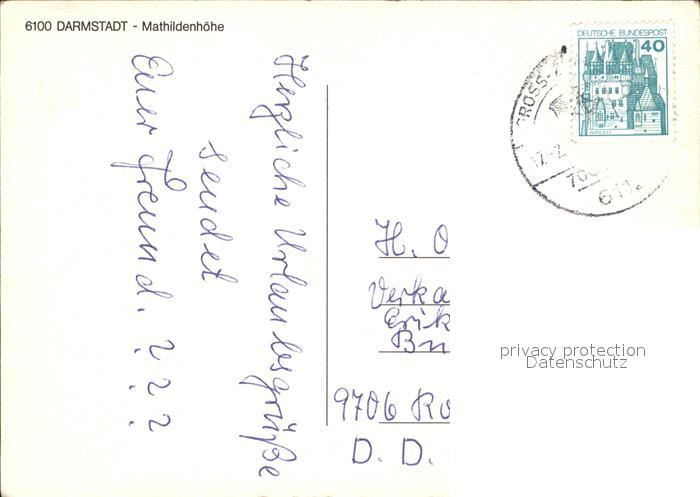 6100 DARMSTADT - Mathildenhöhe
DEUTSCHE BUNDESPOST
40
BURG ELTZ
GROSS-
Herzliche Urlaubsgrüße
sendet
Euer Freund. ? ? ?
H. O
Verka
Erik
9706 Ro
D. D.
privacy protection
Datenschutz